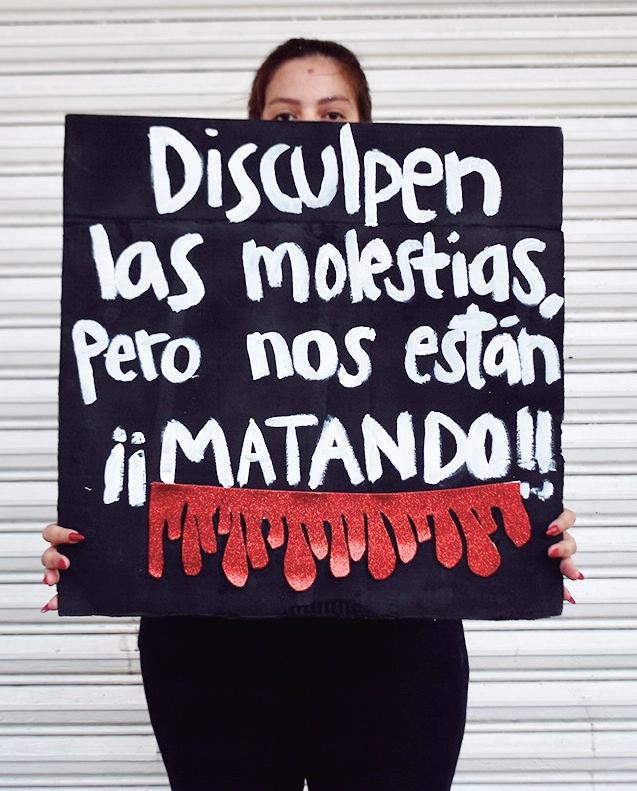 Disculpen
las molestias,
pero nos están
¡¡MATANDO!!